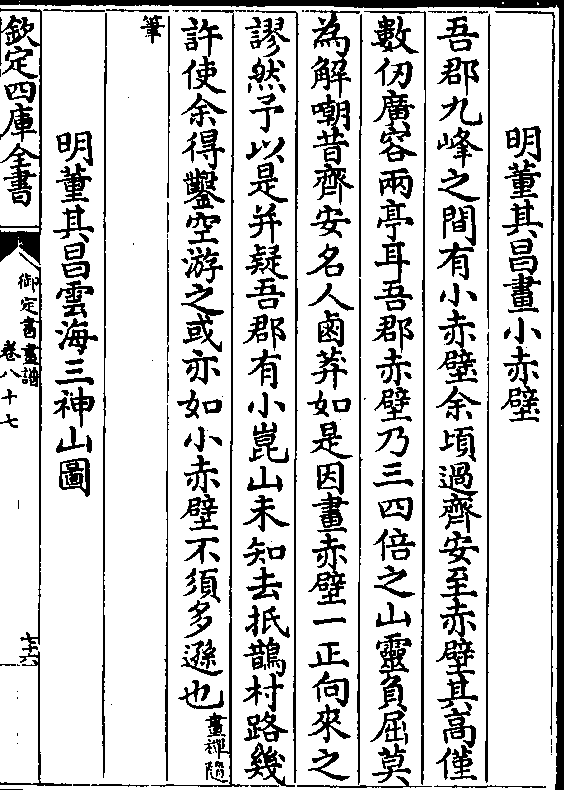 明董其昌畫小赤壁
吾郡九峰之間有小赤壁余頃過齊安至赤壁其高僅
數仞廣容兩亭耳吾郡赤壁乃三四倍之山靈負屈莫
為解嘲昔齊安名人鹵莽如是因畫赤壁一正向來之
謬然予以是并疑吾郡有小崑山未知去抵鵲村路幾
許使余得鑿空游之或亦如小赤壁不須多遜也畫禪隨
筆
明董其昌雲海三神山圖
欽定四庫全書
御定書畫譜
卷八十七